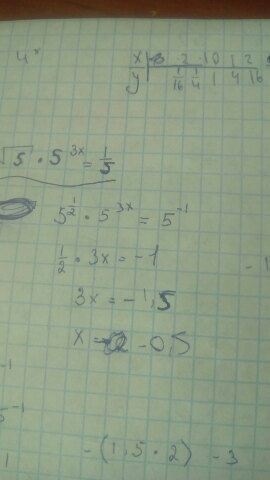 4ˣ
x | -2 -1 0 1 2
y | 1/16 1/4 1 4 16
√5 · 5^3x = 1/5
5^1/2 · 5^3x = 5^-1
1/2 · 3x = -1
3x = -1,5
x = -0,5
-1
5^-1
-(1,5 · 2) -3